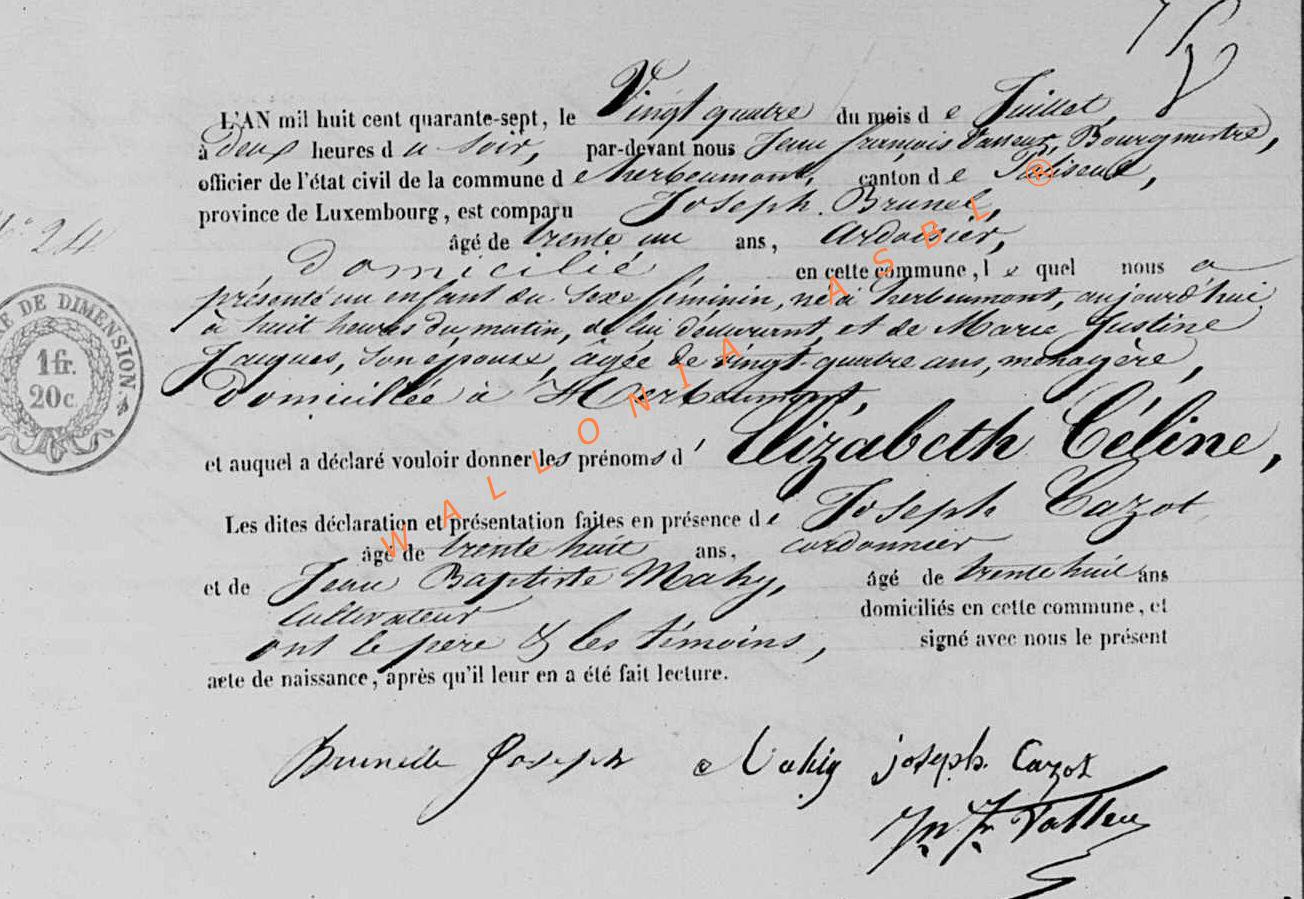 N° 24
L'AN mil huit cent quarante-sept, le Vingt quatre du mois de Juillet,
à deux heures du soir, par-devant nous Jean françois Bourgmestre,
officier de l'état civil de la commune de herbeumont, canton de Paliseul,
province de Luxembourg, est comparu Joseph Brunel,
âgé de trente un ans, Ardoisier,
Domicilié en cette commune, lequel nous a
présenté un enfant du sexe féminin, né à herbeumont, aujourd'hui
à huit heures du matin, de lui déclarant, et de Marie Justine
Jaques, son épouse, âgée de vingt-quatre ans, ménagère,
Domiciliée à Herbeumont,
et auquel a déclaré vouloir donner les prénoms d'Elizabeth Céline,
Les dites déclaration et présentation faites en présence de Joseph Cazot
âgé de trente huit ans, cordonnier
et de Jean Baptiste Mahy, âgé de trente huit ans
Cultivateur domiciliés en cette commune, et
ont le père & les témoins, signé avec nous le présent
acte de naissance, après qu'il leur en a été fait lecture.
Brunelle Joseph Mahy joseph Cazot
Jn Fr
E DE DIMENSION.
1 fr.
20 c.
WALLONIA ASBL ®